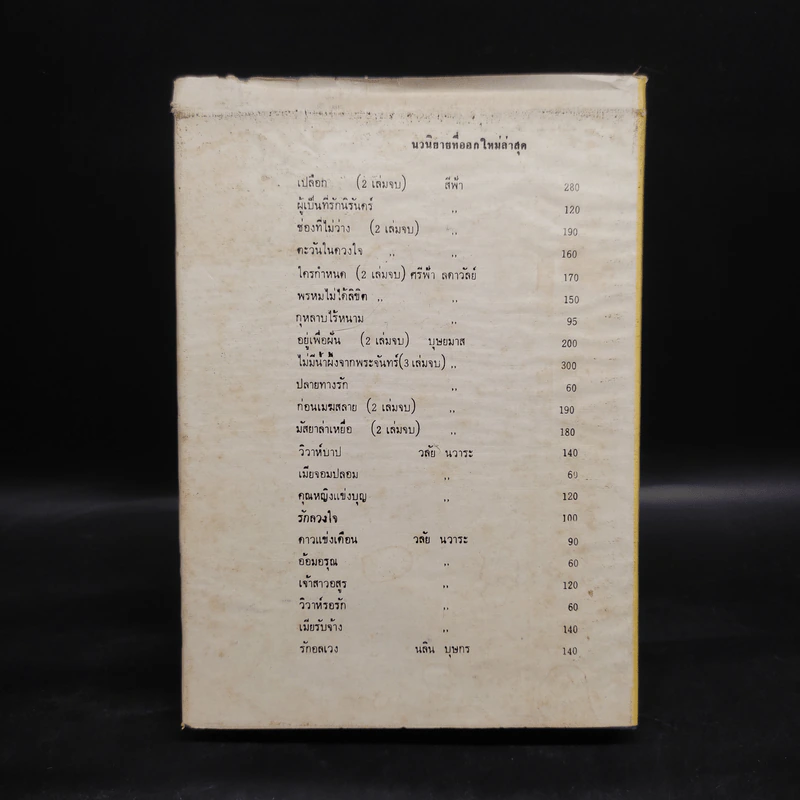 นวนิยายที่ออกใหม่ล่าสุด
เปลือก (2 เล่มจบ) สีฟ้า 280
ผู้เป็นที่รักนิรันดร์ ,, 120
ช่องที่ไม่ว่าง (2 เล่มจบ) ,, 190
ตะวันในดวงใจ ,, ,, 160
ใครกำหนด (2 เล่มจบ) ศรีฟ้า ลดาวัลย์ 170
พรหมไม่ได้ลิขิต ,, ,, 150
กุหลาบไร้หนาม ,, 95
อยู่เพื่อฝัน (2 เล่มจบ) บุษยมาส 200
ไม่มีน้ำผึ้งจากพระจันทร์(3 เล่มจบ) ,, 300
ปลายทางรัก ,, 60
ก่อนเมฆสลาย (2 เล่มจบ) ,, 190
มัสยาล่าเหยื่อ (2 เล่มจบ) ,, 180
วิวาห์บาป วลัย นวาระ 140
เมียจอมปลอม ,, 60
คุณหญิงแข่งบุญ ,, 120
รักลวงใจ 100
ดาวแข่งเดือน วลัย นวาระ 90
อ้อมอรุณ ,, 60
เจ้าสาวอสูร ,, 120
วิวาห์รอรัก ,, 60
เมียรับจ้าง ,, 140
รักอลเวง นลิน บุษกร 140